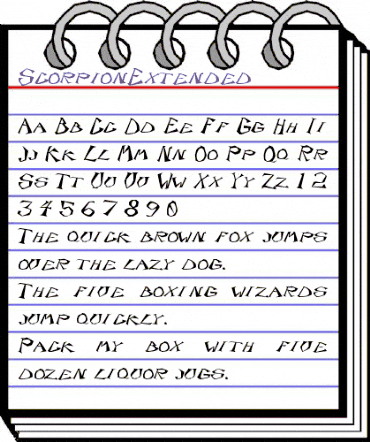 ScorpionExtended
Aa Bb Cc Dd Ee Ff Gg Hh Ii
Jj Kk Ll Mm Nn Oo Pp Qq Rr
Ss Tt Uu Vv Ww Xx Yy Zz 1 2
3 4 5 6 7 8 9 0
The quick brown fox jumps
over the lazy dog.
The five boxing wizards
jump quickly.
Pack my box with five
dozen liquor jugs.